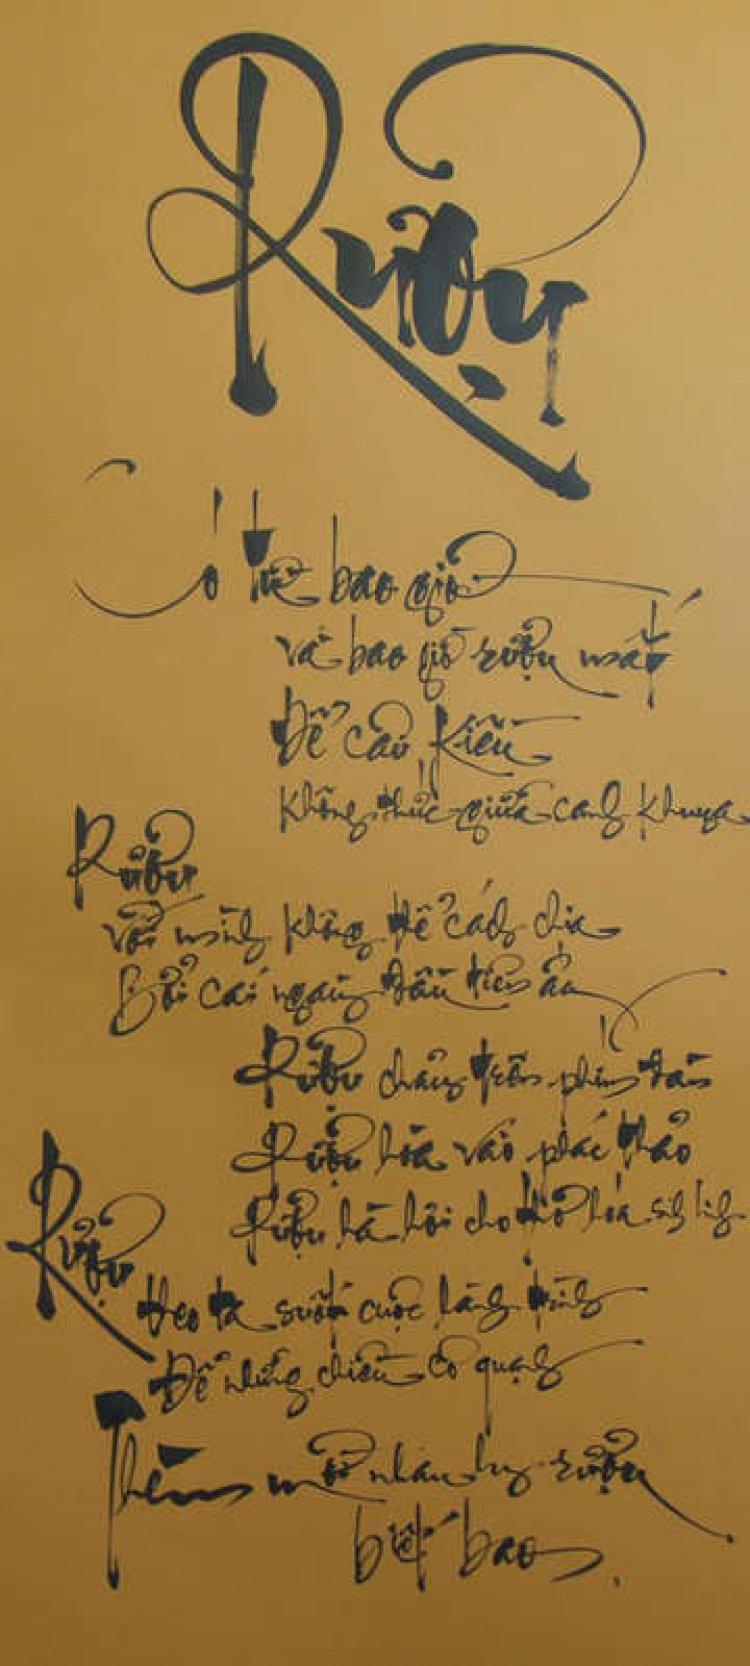 Rượu
Có từ bao giờ
và bao giờ rượu mất
Để cậu Kiều
Không thức giữa canh khuya
Rượu
với mình không thể cách chia
Bởi cái ngày đầu tiên ấy
Rượu chảy trên phím đàn
Rượu hòa vào phác thảo
Rượu hà hơi cho thơ hóa sinh linh
Rượu
theo ta suốt cuộc hành trình
Để những chiều cô quạnh
Thèm một nhấp rượu
biết bao.